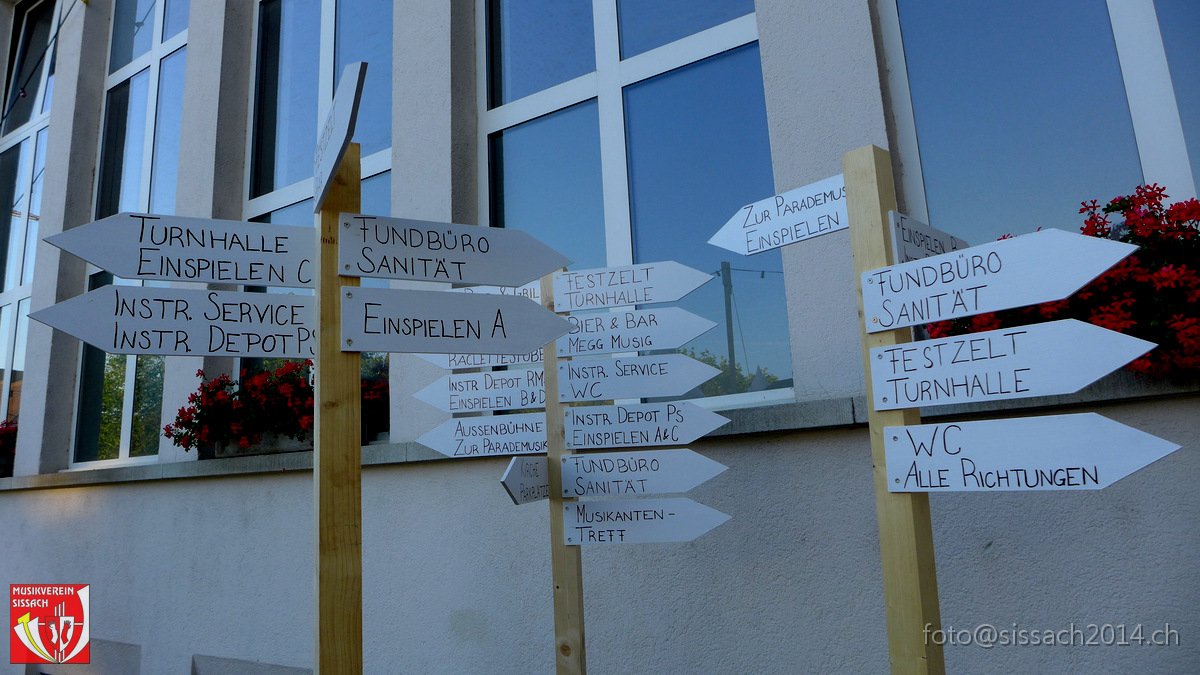 TURNHALLE
EINSPIELEN C
INSTR. SERVICE
INSTR. DEPOT PS
FUNDBÜRO
SANITÄT
EINSPIELEN A
& GRILL
RACLETTESTUBE
INSTR. DEPOT RM
EINSPIELEN B&D
AUSSENBÜHNE
ZUR PARADEMUSIK
KIRCHE
PARKPLÄTZE
FESTZELT
TURNHALLE
BIER & BAR
MEGG MUSIG
INSTR. SERVICE
WC
INSTR. DEPOT PS
EINSPIELEN A&C
FUNDBÜRO
SANITÄT
MUSIKANTEN-
TREFF
ZUR PARADEMUS
EINSPIELEN
EINSPIELEN B
FUNDBÜRO
SANITÄT
FESTZELT
TURNHALLE
WC
ALLE RICHTUNGEN
MUSIKVEREIN
SISSACH
foto@sissach2014.ch